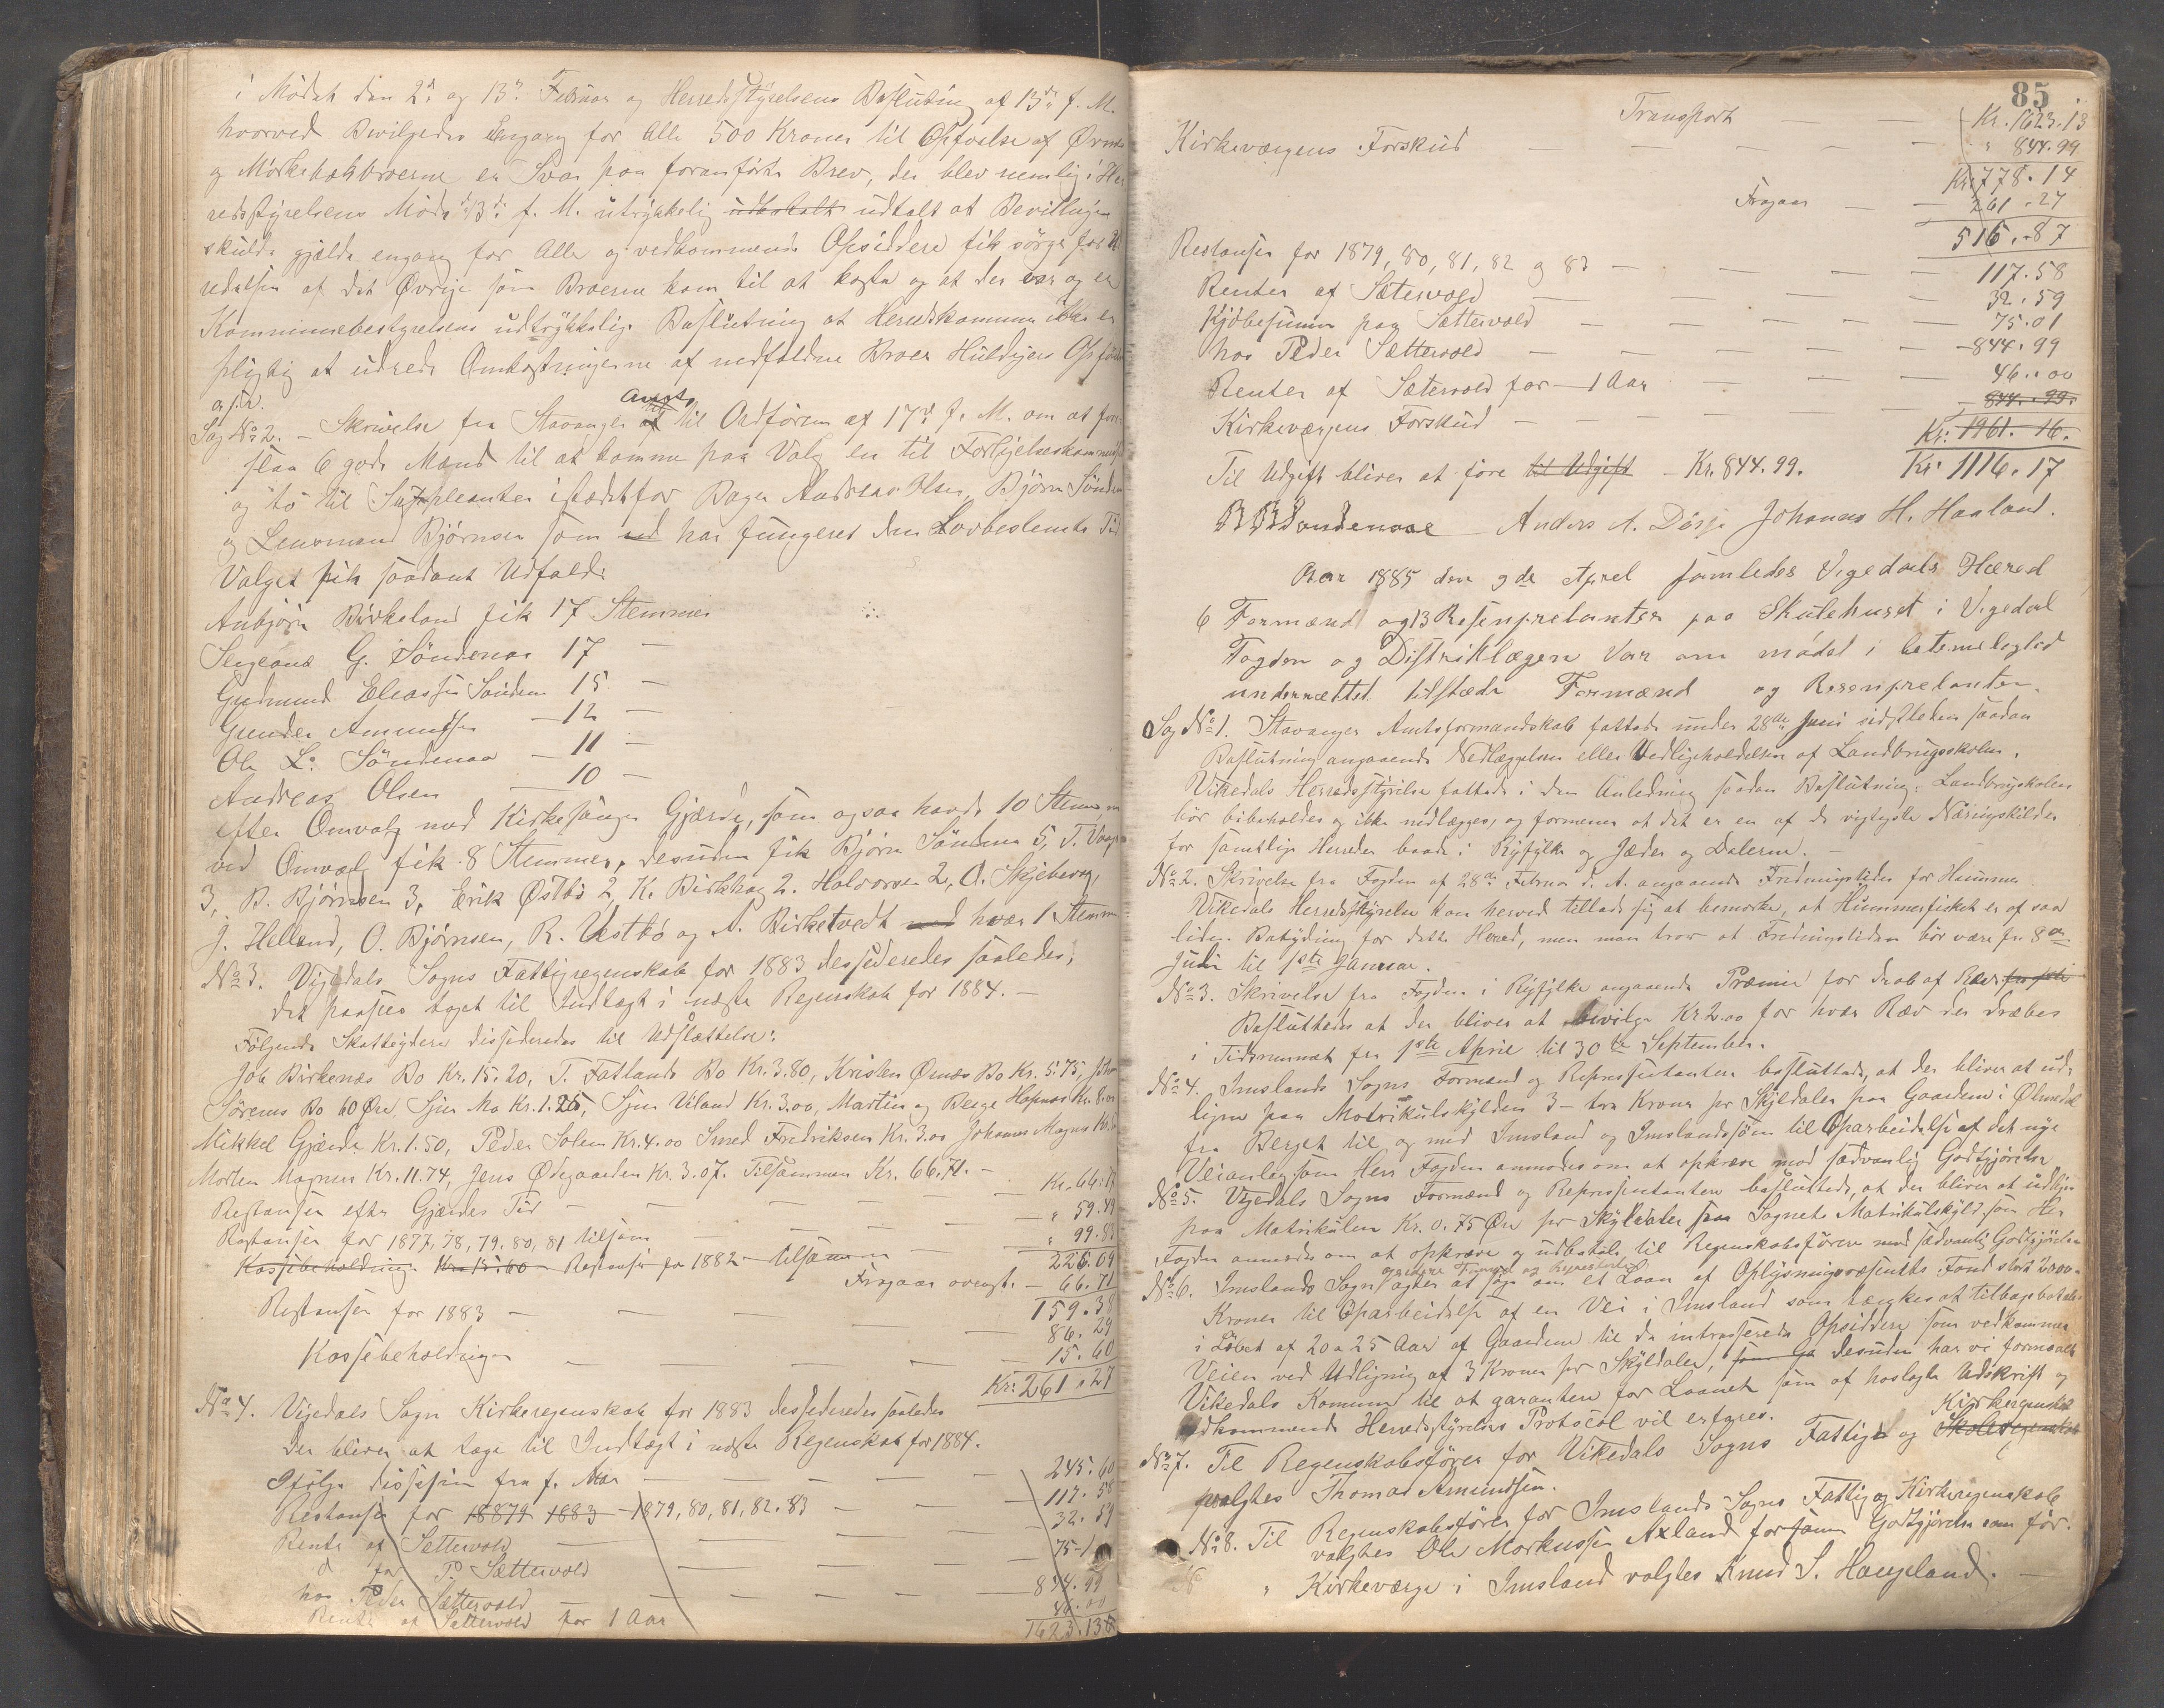 i Mödet den 2den og 13de Februar og Herredsstyrelsens Beslutning af 13de f. M.
hvorved Bevilgedes Engang for Alle 500 Kroner til Opførelse af Ørnes
og Mörkebækbroerne er Svar paa foranførte Brev, der blev nemlig i Her
redsstyrelsens Möde 13de f. M. utrykkelig udbetalt udtalt at Bevilingen
skulde gjælde engang for Alle og vedkommende Opsiddere fik sörge for U
redelsen af det Øvrige som Broerne kom til at koste og at der var og er
Kommunebestyrelsens udtrykkelige Beslutning at Herredskomunen ikke er
pligtig at udrede Omkostningerne af nedfaldne Broer
a.s.v.
Sag No 2. – Skrivelse fra Stavanger Amt til Ordføreren af 17de f. M. om at fore
slaa 6 gode Mænd til at komme paa Valg en til Forligelseskommisær
og to til Suppleanter istedetfor Bager Andreas Olsen, Bjørn Sönden
og Lensmand Bjørnsen som ud har fungeret den Lovbestemte Tid.
Valget fik saadant Udfald:
Anbjörn Birkeland fik 17 Stemmer
Sergeant G. Söndenaa 17 –
Gudmund Eliassen Sönden 15 –
Gunder Amundsen – 12 –
Ole L. Söndenaa – 11 –
Andreas Olsen – 10 –
efter Omvalg med Kirkesanger Gjærde, som ogsaa havde 10 Stemmer
ved Omvalg fik 8 Stemmer, desuden fik Bjørn Sönden 5, T. Vaage
3, B. Bjørnsen 3, Erik Østbö 2, K. Birkhag 2. Halvorsen 2, O. Skjeberg,
J. Helland, O. Bjørnsen, R. Vestbö og A. Birketvedt med hver 1 Stemme
No 3. Vigedals Sogns Fattigregnskab for 1883 dessideredes saaledes;
det paasees taget til Indtægt i næste Regnskab for 1884. –
Følgende Skatteydere dessideredes til Udslættelse:
Job Birkenæs Bo Kr. 15.20, T. Fatlands Bo Kr. 3.80, Kristen Ørnes Bo Kr. 5.75,
Sörens Bo 60 Øre, Sjur Mo Kr. 1.25, Sjur Viland Kr. 3.00, Martin og Berge Hopnes Kr. 8.00
Mikkel Gjærde Kr. 1.50, Peder Solem Kr. 4.00 Smed Fredriksen Kr. 3.00 Johannes Magnus Kr.
Morten Magnus Kr. 11.74, Jens Ødegaarden Kr. 3.07. Tilsammen Kr. 66.71. –
Kr. 66.71
Restanser efter Gjærdes Tid – – – " 59.49
Restanser for 1877, 78, 79, 80, 81 tilsam – – – " 99.83
Kassebeholdning Kr. 15.60 Restanser for 1882 tilsammen 226.09
Fragaar ovenst. – 66.71
159.38
Restanser for 1883 – – – 86.29
Kassebeholdningen – – – 15.60
Kr: 261.27
No 4. Vigedals Sogn Kirkeregnskab for 1883 dessideredes saaledes
der bliver at tage til Indtægt i næste Regnskab for 1884.
Ifölge dessisjon fra f. Aar – – – 245.60
Restanser for 18879 1883 – 1879, 80, 81, 82, 83 – – 117.58
Rente af Sættervold – – – 32.59
d for P. Sættervold – – – 75–1
hos Peder Sættervold – – – 844.99
Rente af Sættervold for 1 Aar 46.00
1623.13
85
Transport – – Kr. 1623.13
Kirkeværgens Forskud – – – " 844.99
Kr. 778.14
Fragaar – – 261.27
516.87
Restanser for 1879, 80, 81, 82 og 83 – – – 117.58
Renter af Sætervold – – – 32.59
Kjöbesumen paa Sættervold – – – 75.01
hos Peder Sættervold – – – 844.99
Renter af Sætervold for – 1 Aar – – – 46.00
Kirkeværgens Forskud – – – 844.99.
Kr: 1961.16.
Til Udgift bliver at före til Udgift – Kr. 844.99. Kr: 1116.17
B B Söndenaae Anders A. Dörje Johannes H. Haaland.
Aar 1885 den 9de Aprel samledes Vigedals Hæred
6 Formænd og 13 Resenprelanter paa Skulehuset i Vigedal
Fogden og Distriktlægen Var om mödet i betimelighed
underrættet tilstæde Formænd og Resenprelanter.
Sag No 1. Stavanger Amtsformandskab fattede under 28de Juni sidstleden saadan
Beslutning angaaende Nedlæggelsen eller Vedligeholdelsen af Landbrugsskolen.
Vikedals Herredsstyrelse fattede i den Anledning saadan Beslutning: Landbrugskolen
bör bibeholdes og ikke nedlægges, og formener at det er en af de vigtigste Næringskilder
for samtlige Herreder baade i Ryfylke og Jæder og Dalerne. –
No 2. Skrivelse fra Fogden af 28de Februar d. A. angaaende Fredningstiden for Hummer
Vikedals Herredsstyrelse kan herved tillade sig at bemærke, at Hummerfisket er af saa
liden Betydning for dette Hered, men man tror at Fredningstiden bör være fra 8de
Juli til 1ste Januar.
No 3. Skrivelse fra Fogden i Ryfylke angaaende Præmie for drab af Ræv
Besluttedes at der bliver at bevilge Kr 2.00 for hver Ræv der dræbes
i Tidsrummet fra 1ste April til 30te September.
No 4. Imslands Sogns Formænd og Repræsentanter besluttede, at der bliver at ud-
ligne paa Matrikulskylden 3 – tre Kroner pr Skyldaler paa Gaardene i Ølmedal
fra Berget til og med Imsland og Imslandssjøen til Oparbeidelse af det nye
Veianlæg som Herr Fogden anmodes om at opkræve mod sædvanlig Godtgjörelse
No 5. Vigedals Sogns Formænd og Repræsentanter besluttede, at der bliver at udligne
paa Matrikulen Kr. 0.75 Øre pr Skyldaler paa Sognets Matrikulskyld som Her
Fogden anmodes om at opkræve og udbetale til Regnskabsføreren mod sædvanlig Godtgjörelse
No 6. Imslands Sogns agter at söge om et Laan af Oplysningsvæsenets Fond stort
Kroner til Oparbeidelse af en Vei i Imsland som tænkes at tilbagebetales
i Löbet af 20 a 25 Aar af Gaardene til de intresserede Opsiddere som vedkommer
Veien ved Udligning af 3 Kroner pr Skyldaler, desuden har vi formaaet
Vikedals Komune til at garantere for Laanet som af hoslagte Udskrift og
vedkommende Herredsstyrelses Protocol vil erfares.
No 7. Til Regnskabsfører for Vikedals Sogns Fattig- og Skoleregnskab Kirkeregnskab
valgtes Thomas Amundsen.
No 8. Til Regnskabsfører for Imslands Sogns Fattig og Kirkeregnskab
valgtes Ole Markussen Axland forsaam Godtgjörelse som för.
" Kirkeværge i Imsland valgtes Knud S. Haugeland. –